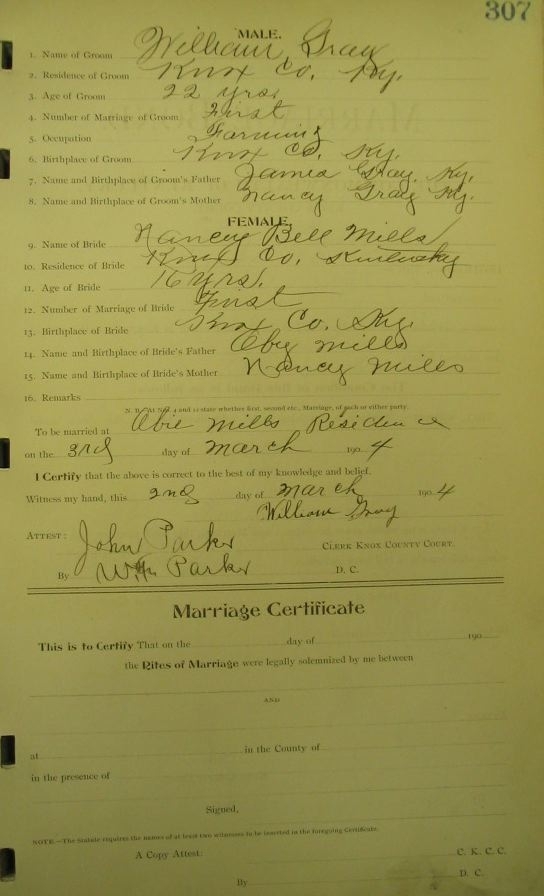 307
MALE.
1. Name of Groom William Gray
2. Residence of Groom Knox Co. Ky.
3. Age of Groom 22 yrs.
4. Number of Marriage of Groom First
5. Occupation Farming
6. Birthplace of Groom Knox Co. Ky.
7. Name and Birthplace of Groom's Father James Gray. Ky.
8. Name and Birthplace of Groom's Mother Nancy Gray Ky.
FEMALE.
9. Name of Bride Nancy Bell Mills
10. Residence of Bride Knox Co. Kentucky
11. Age of Bride 16 yrs.
12. Number of Marriage of Bride First
13. Birthplace of Bride Knox Co. Ky.
14. Name and Birthplace of Bride's Father Oby Mills
15. Name and Birthplace of Bride's Mother Nancy Mills
16. Remarks
N. B. At Nos. 4 and 12 state whether first, second etc., Marriage, of each or either party.
To be married at Obie Mills Residence
on the 3rd day of March 190 4
I Certify that the above is correct to the best of my knowledge and belief.
Witness my hand, this 2nd day of March 190 4
William Gray
ATTEST: John Parker CLERK KNOX COUNTY COURT.
By Wm Parker D. C.
Marriage Certificate
This is to Certify That on the day of 190
the Rites of Marriage were legally solemnized by me between
AND
at in the County of
in the presence of
Signed,
NOTE.—The Statute requires the names of at least two witnesses to be inserted in the foregoing Certificate.
A Copy Attest: C. K. C. C.
By D. C.